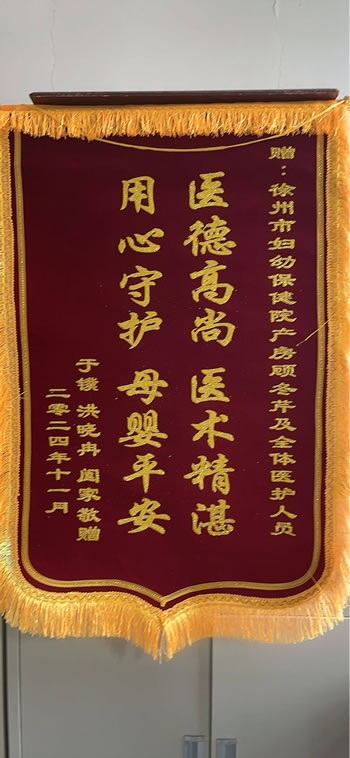 赠：徐州市妇幼保健院产房顾冬芹及全体医护人员
医德高尚 医术精湛
用心守护 母婴平安
于镤 洪晓冉 阖家敬赠
二零二四年十一月